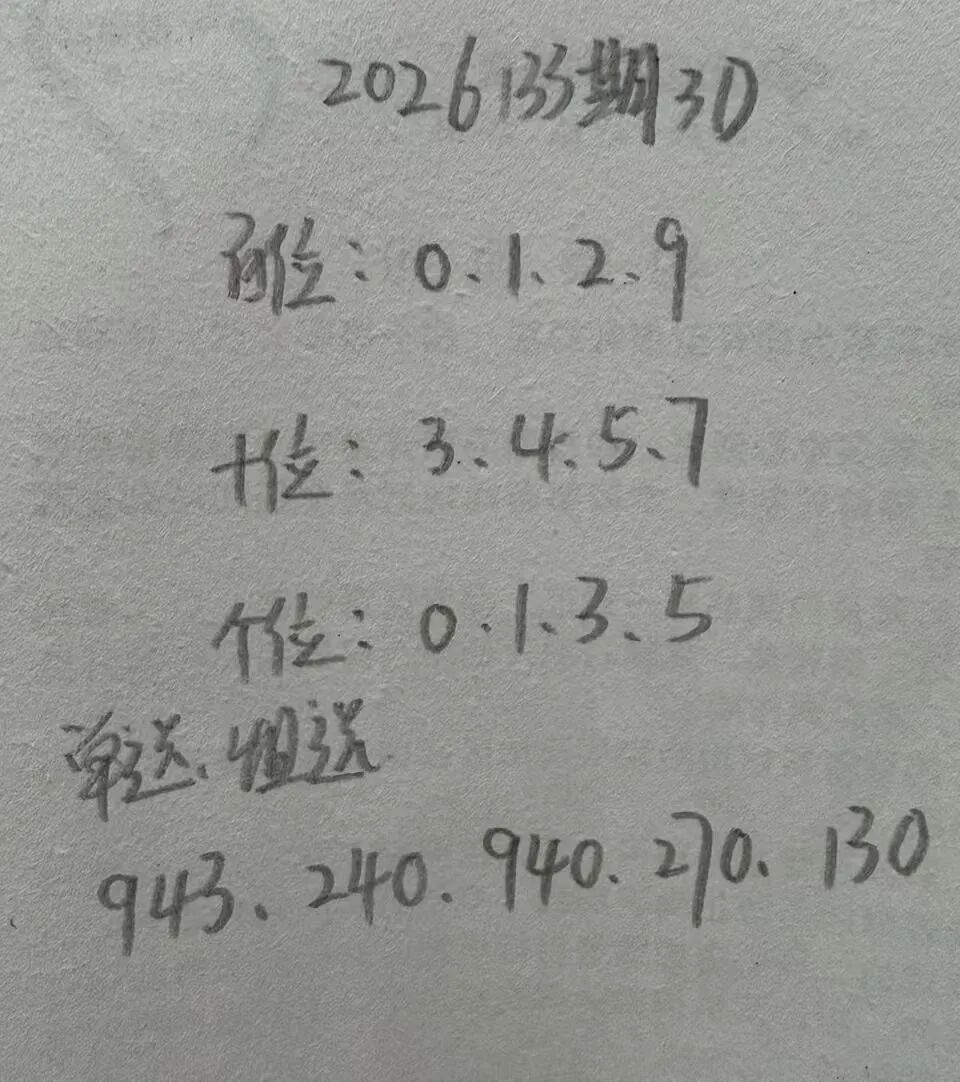 2026133期3D
百位：0、1、2、9
十位：3、4、5、7
个位：0、1、3、5
单选、组选
943、240、940、270、130